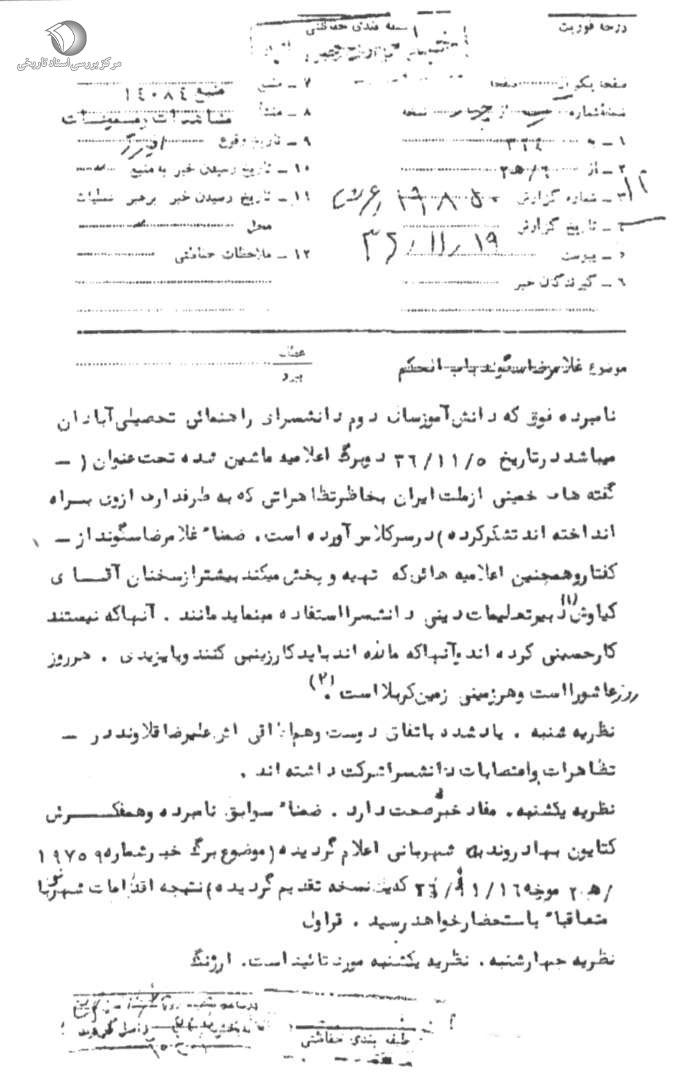 مرکز بررسی اسناد تاریخی
درجه فوریت
طبقه بندی حفاظتی
صفحه یک از صفحه
نسخه شماره از چهار نسخه
۱ ـ به ۳۳۴
۲ ـ از ۲ هـ/۶
۳ ـ شماره گزارش
۴ ـ تاریخ گزارش ۳۶/۱۱/۱۹
۵ ـ پیوست
۶ ـ گیرندگان خبر
۷ ـ منبع منبع ۱۴۰۸۴
۸ ـ منشأ مشاهدات و مسموعات
۹ ـ تاریخ وقوع
۱۰ ـ تاریخ رسیدن خبر به منبع
۱۱ ـ تاریخ رسیدن خبر برهبر عملیات
محل
۱۲ ـ ملاحظات حفاظتی
موضوع غلامرضا سگوند باب الحکم
عطف
پیرو
نامبرده فوق که دانش آموز سال دوم دانشسرای راهنمائی تحصیلی آبادان
میباشد در تاریخ ۳۶/۱۱/۵ دو برگ اعلامیه ماشین شده تحت عنوان ( ـ
گفته های خمینی از ملت ایران بخاطر تظاهراتی که به طرفداری از وی براه
انداخته اند تشکر کرده) در سر کلاس آورده است. ضمناً غلامرضا سگوند از ـ
گفتار و همچنین اعلامیه هائی که تهیه و پخش میکند بیشتر از سخنان آقای
کیاوش (۱) دبیر تعلیمات دینی دانشسرا استفاده مینماید مانند . آنها که نیستند
کار حسینی کرده اند و آنها که مانده اند باید کار زینبی کنند و یا یزیدی . هر روز
روز عاشورا است و هر زمینی زمین کربلا است . (۲)
نظریه شنبه . یاد شده باتفاق دوست و هم اطاقی اش علیرضا قلاوند در ـ
تظاهرات و اعتصابات دانشسرا شرکت داشته اند .
نظریه یکشنبه. مفاد خبر صحت دارد . ضمناً سوابق نامبرده و همفکرش
کتایون بهادروند به شهربانی اعلام گردیده (موضوع برگ خبر شماره ۱۹۷۵۹
/هـ ۲ مورخه ۳۶/۱۱/۱۶ که یک نسخه تقدیم گردیده) نتیجه اقدامات شهربانی
متعاقباً باستحضار خواهد رسید . قراول
نظریه چهارشنبه. نظریه یکشنبه مورد تائید است. ارژنگ
طبقه بندی حفاظتی